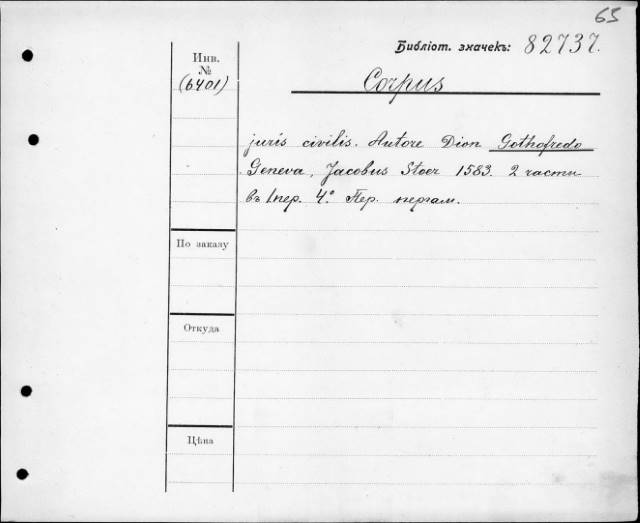 65
Библіот. значекъ: 82737.
Инв.
№
(6401)
Corpus
juris civilis. Autore Dion Gothofredo
Geneva, Jacobus Stoer 1583. 2 части
въ 1 пер. 4.° Пер. пергам.
По заказу
Откуда
Цѣна